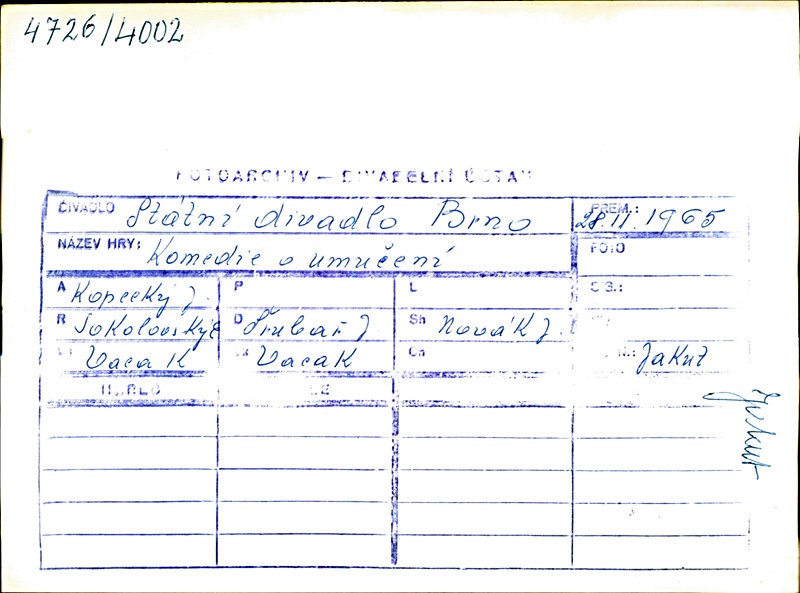 4726/4002
FOTOARCHIV — DIVADELNÍ ÚSTAV
DIVADLO Státní divadlo Brno PREM.: 28.11.1965
NÁZEV HRY: Komedie o umučení FOTO
A Kopecký J. P L
R Sokolovský E D Štrubař J. Sh Novák J.
Vaca K Vaca K Ch Jakut
HEREC
Jakut